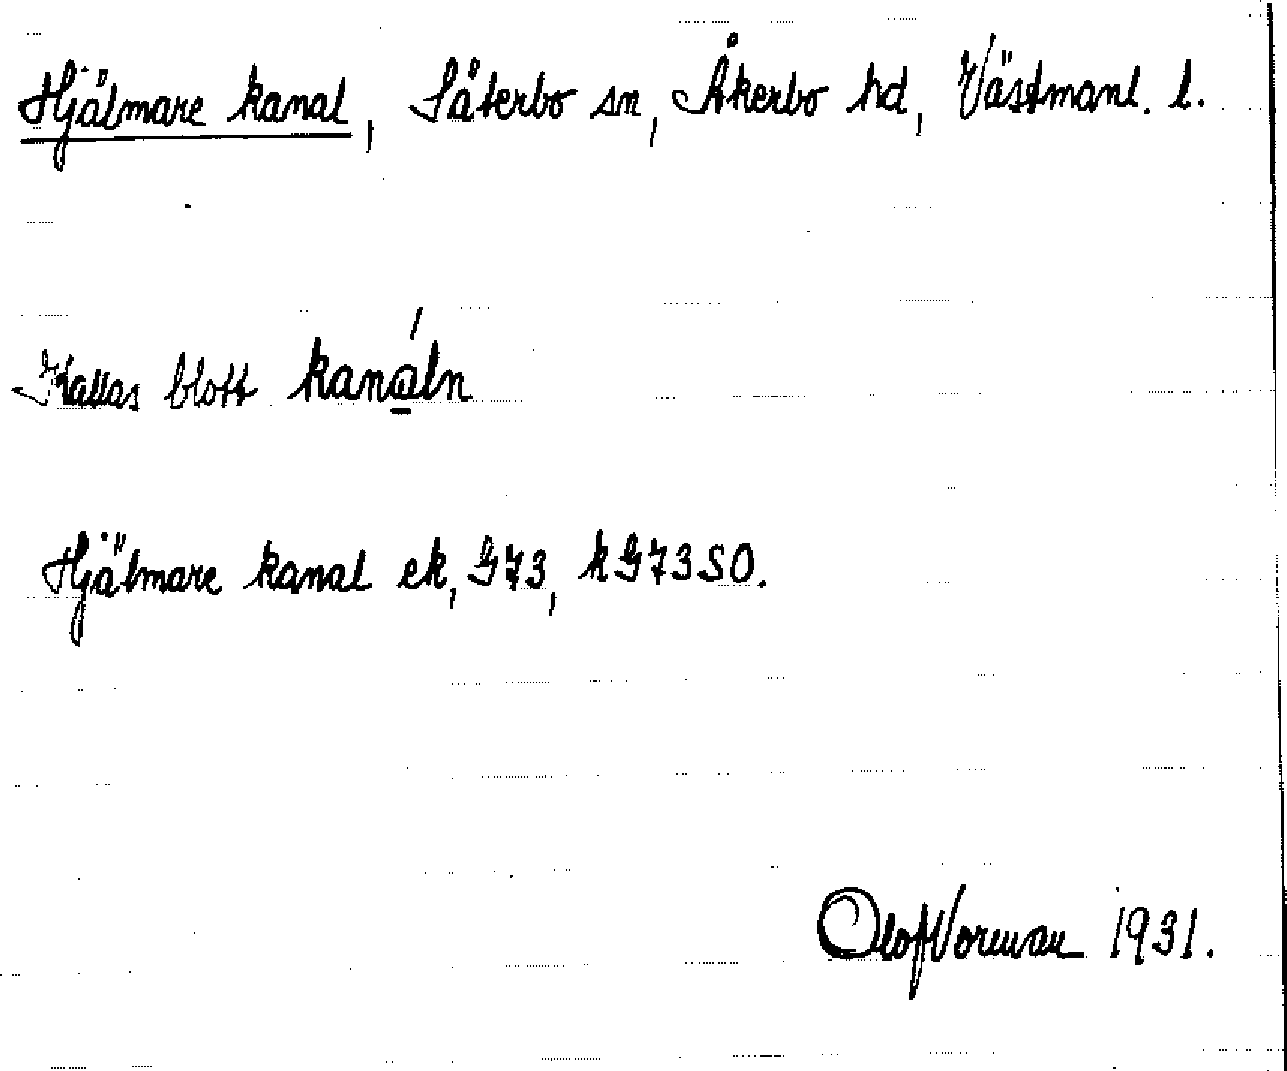 Hjälmare kanal, Säterbo sn, Åkerbo hd, Västmanl. l.
Kallas blott kanạ́ln
Hjälmare kanal ek, G73, kG73SO.
Olof Vorman 1931.